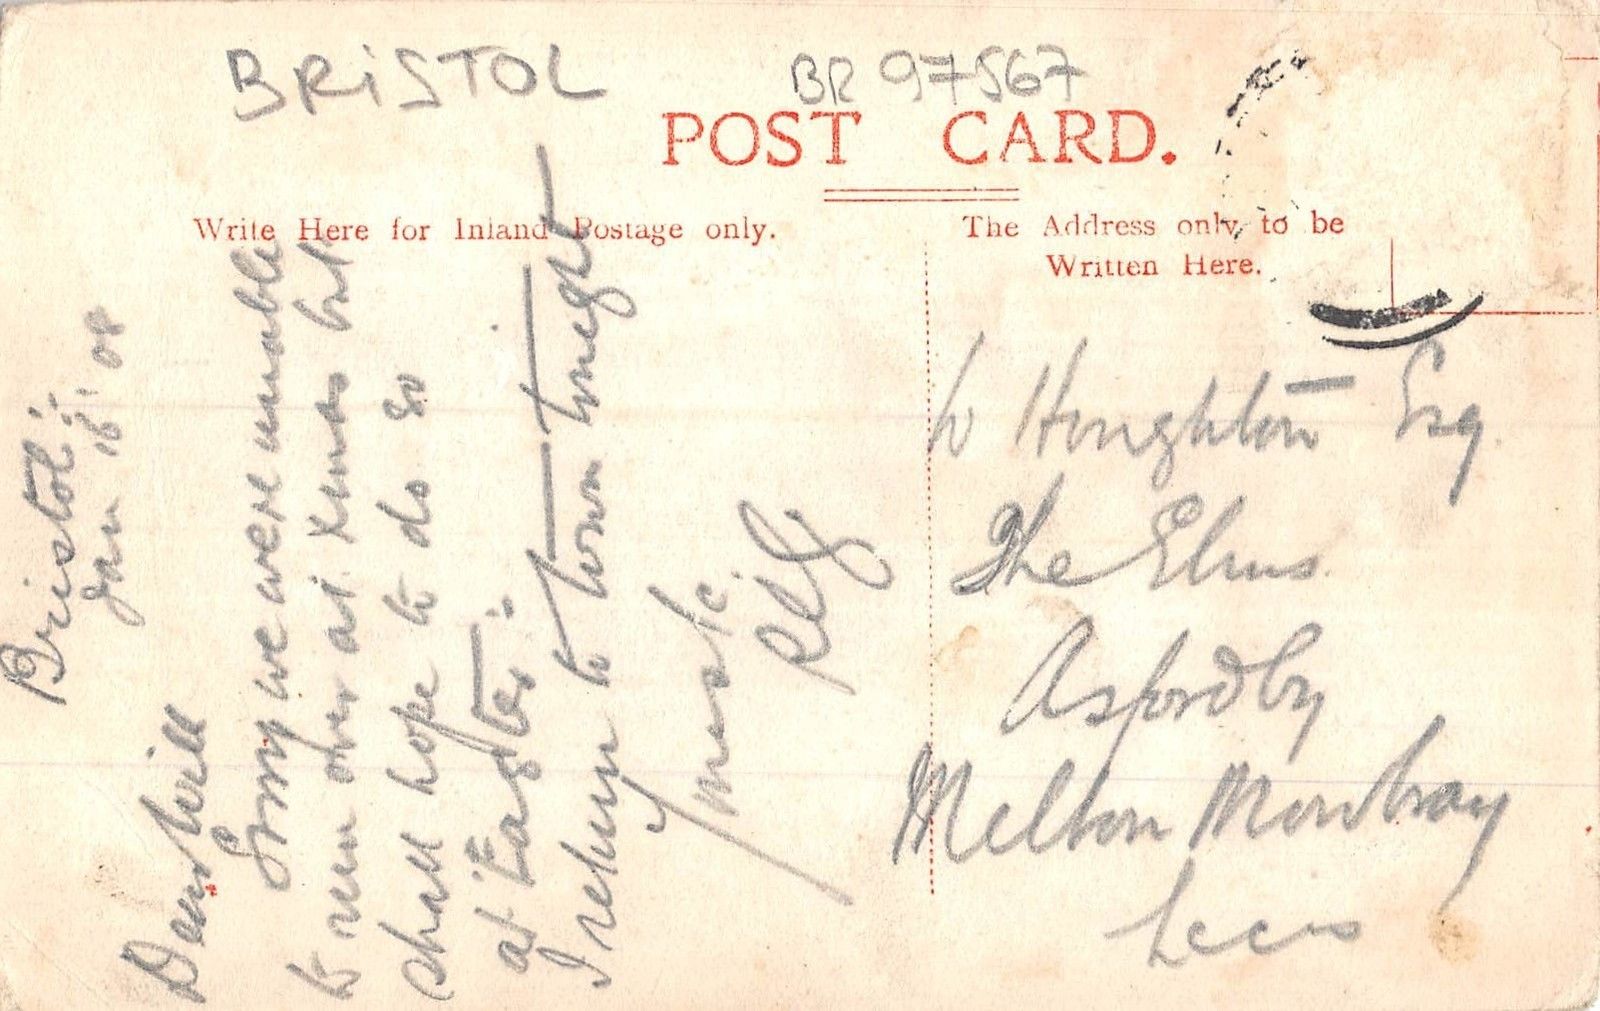 BRiSTOL
BR 97567
POST CARD.
Write Here for Inland Postage only.
The Address only to be
Written Here.
Bristol
Jan 16 08
Dear Will
Sorry we were unable
to run over at Xmas but
shall hope to do so
at Easter
I return to town tonight
Yours &c
W Houghton Esq
The Elms
Asfordby
Melton Mowbray
Leics